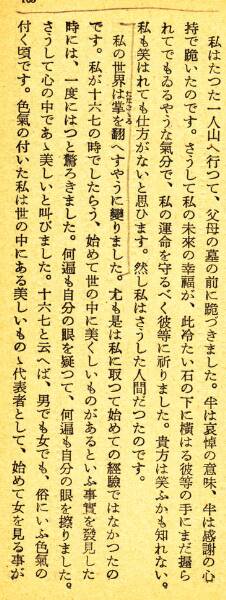 私はたつた一人山へ行つて、父母の墓の前に跪づきました。半は哀悼の意味、半は感謝の心
持で跪いたのです。さうして私の未來の幸福が、此冷たい石の下に横はる彼等の手にまだ握ら
れてでもゐるやうな氣分で、私の運命を守るべく彼等に祈りました。貴方は笑ふかも知れない。
私も笑はれても仕方がないと思ひます。然し私はさうした人間だつたのです。
私の世界は掌を翻へすやうに變りました。尤も是は私に取つて始めての經驗ではなかつたの
です。私が十六七の時でしたらう、始めて世の中に美くしいものがあるといふ事實を發見した
時には、一度にはつと驚ろきました。何遍も自分の眼を疑つて、何遍も自分の眼を擦りました。
さうして心の中であゝ美しいと叫びました。十六七と云へば、男でも女でも、俗にいふ色氣の
付く頃です。色氣の付いた私は世の中にある美しいものゝ代表者として、始めて女を見る事が